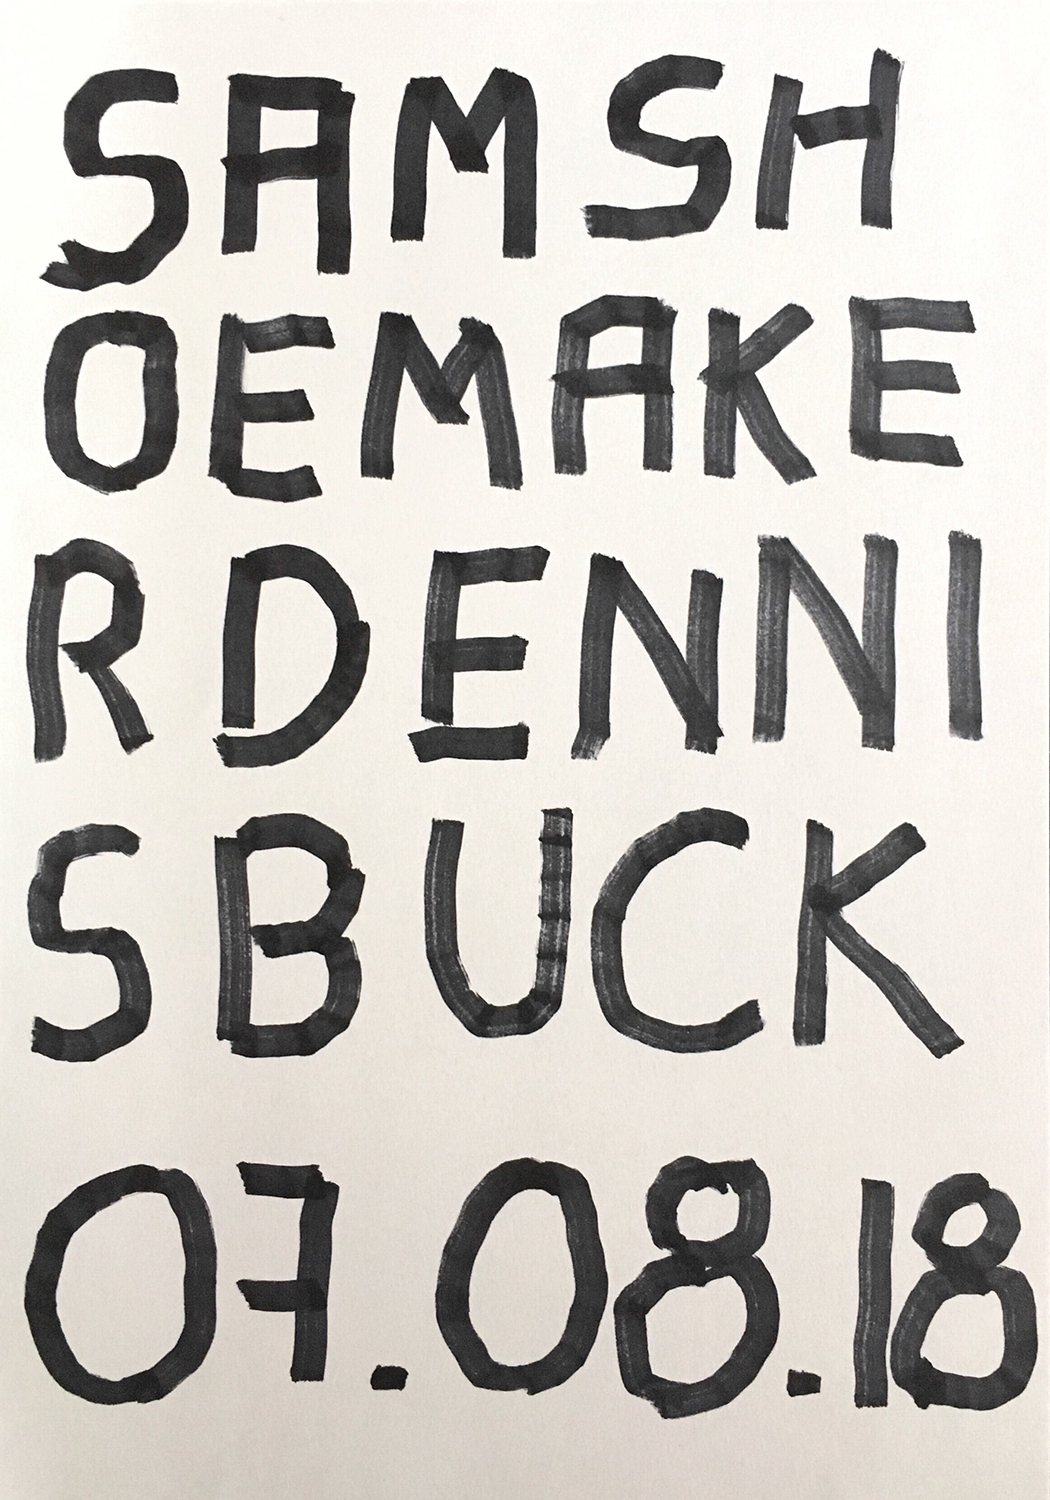 SAM SH
OEMAKE
R DENNI
S BUCK
07.08.18